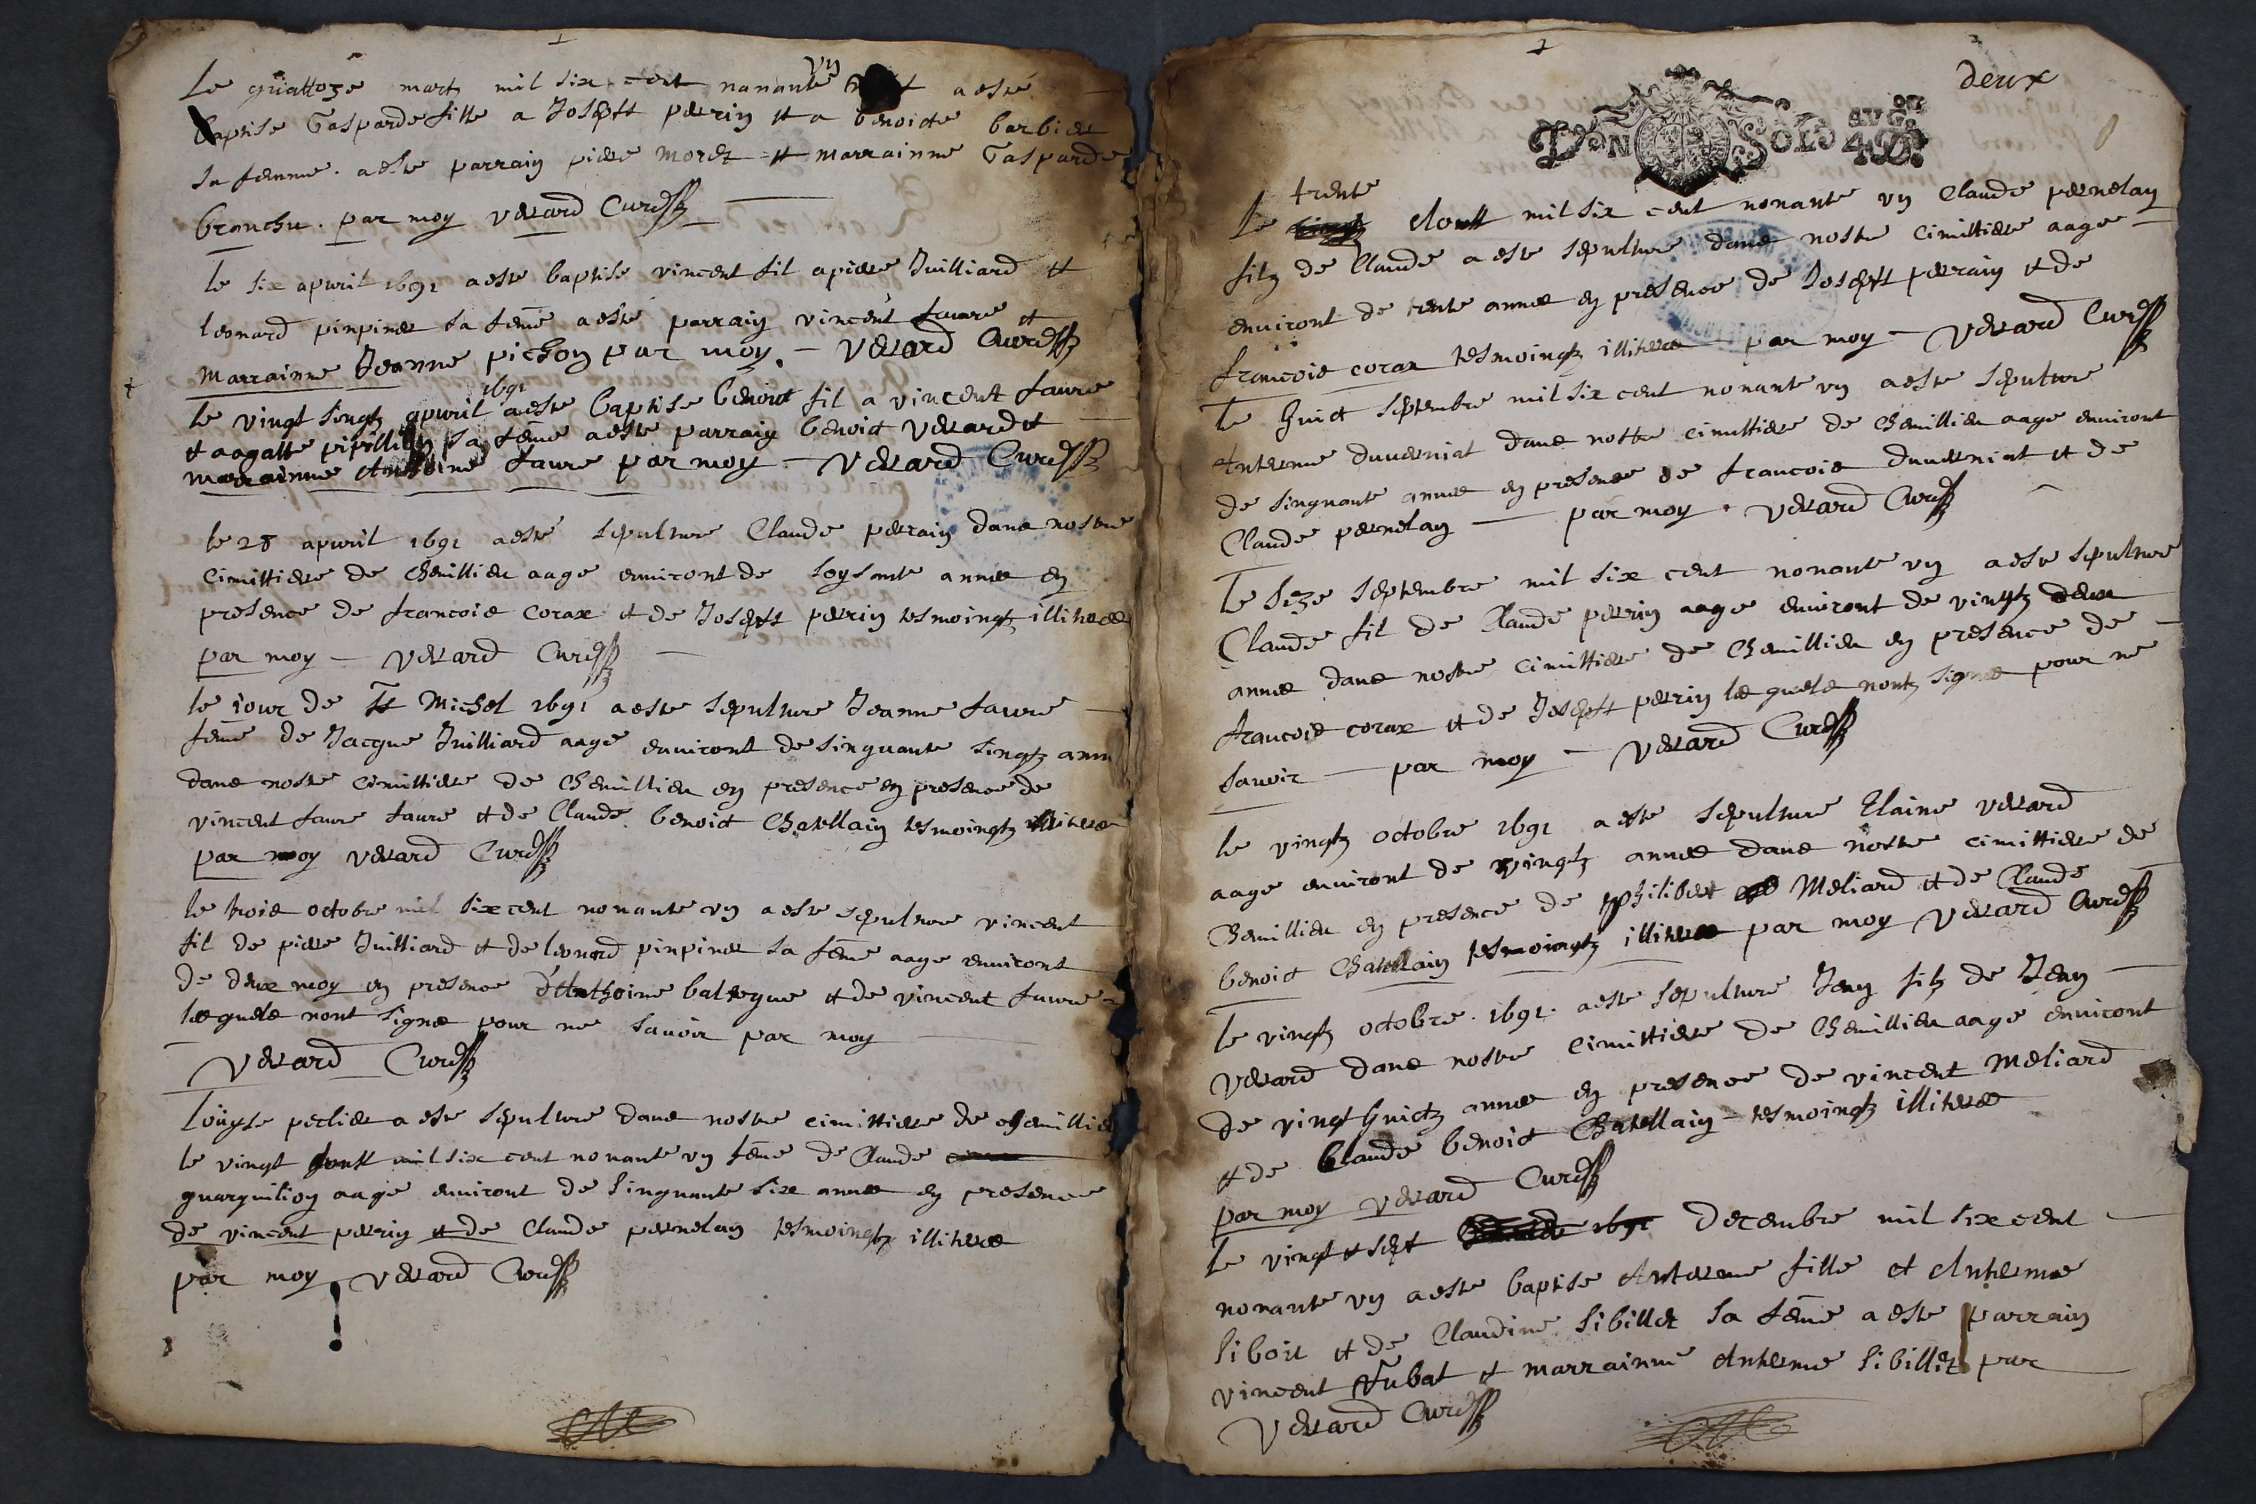 Le quattorze marts mil six cent nonante vn aesté
baptise Gasparde fille a Joseptt perrin et a benoicte barbier
sa femme. aeste parrain piere moret et marrainne Gasparde
branchu. par moy verard Curé
le six apuril 1691 aeste baptise vincent fil a piere Juilliard et
leonard pinpinet sa feme aesté parrain vincent faure et
marrainne Jeanne pichon par moy. verard Curé
le vingt sinqtz apuril 1691 aeste baptise benoict fil a vincent faure
et aagatte sa feme aeste parraiy benoict verard et
marrainne Anthoine faure par moy verard Curé
le 28 apuril 1691 aesté sepulture Claude perrain dans nostre
Cimittiere de Chemillieu aage enuiront de soysante annee en
presence de francois corax et de Joseptt perrin tesmoingtz illiteres
par moy verard Curé
le iour de St Michel 1691 aeste sepulture Jeanne faure
feme de Jacque Juilliard aage enuiront de sinquante sinqtz ann
dans nostre Cimittiere de Chemillieu en presence en presence de
vincent faure faure et de Claude benoict Chatellain tesmoingtz illiteres
par moy verard Curé
le trois octobre mil six cent nonante vn aeste sepulture vincent
fil de piere Juilliard et de leonard pinpinet sa feme aage enuiront
de deux moy en presence d'Anthoine baltregue et de vincent faure
lesquels nont signe pour ne sauoir par moy
verard Curé
Louyse peclier aeste sepulture dans nostre cimittiere de chemillieu
le vingt Aoutt mil six cent nonante vn feme de Claude
quarquilion aage enuiront de sinquante six annee en presence
de vincent perrin et de Claude pernelan tesmoingtz illiteres
par moy verard Curé
deux
DEN SOLS 4D
AVG
trente
le Aoutt mil six cent nonante vn Claude pernelan
filz de Claude aeste sepulture dans nostre Cimittiere aage
enuiront de trente annee en presence de Joseptt perrain et de
francois corax tesmoingtz illiteres par moy verard Curé
le huict septembre mil six cent nonante vn aeste sepulture
Anterme duuerniat dans nostre cimittiere de Chemillieu aage enuiront
de sinquante annee en presence de francois duuerniat et de
Claude pernelan par moy. verard Curé
le size septembre mil six cent nonante vn aeste sepulture
Claude fil de Claude perrin aage enuiront de vingtz deux
annee dans nostre cimittiere de Chemillieu en presence de
francois corax et de Joseptt perrin lesquels nontz signe pour ne
sauoir par moy verard Curé
le vingtz octobre 1691 aeste sepulture Elaine verard
aage enuiront de vingtz annee dans nostre cimittiere de
Chemillieu en presence de philibert Meliard et de Claude
benoict Chatellain tesmoingtz illiteres par moy verard Curé
le vingtz octobre. 1691. aeste sepulture Jean filz de Jean
verard dans nostre cimittiere de Chemillieu aage enuiront
de vingt huictz annee en presence de vincent Meliard
et de Claude benoict Chatellain tesmoingtz illiteres
par moy verard Curé
le vingt et sept 1691 decembre mil six cent
nonante vn aeste baptise Anterme fille et Anterme
siboit et de Claudine sibillet sa feme aeste parrain
vincent fubat et marrainne Anterme sibillet par
verard Curé